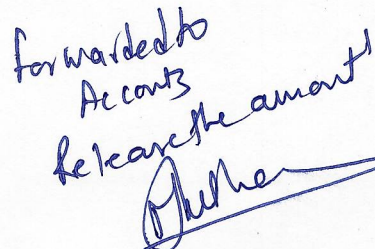 forwarded to
Acconts
Release the amount